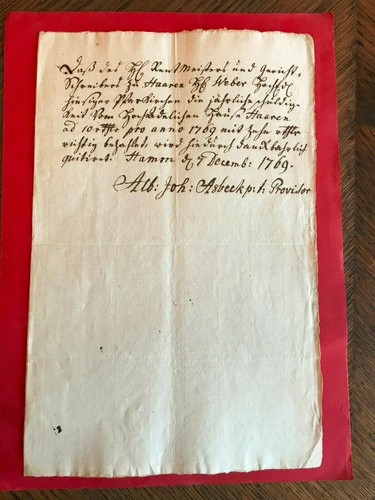 Daß des H. Rent Meisters und Gericht,
Schreibers zu Haaren H. Weber
hiesiger Pfar Kirchen die jährliche schuldig-
keit vom HochAdelichen Hause Haaren
ad 10 rthlr pro anno 1769 mit zehn rthlr
richtig bezahlet, wird hiedurch danckbahrlich
quitiret. Hamm d. 5 Decemb: 1769.
Alb: Joh: Asbeck p: t: Provisor